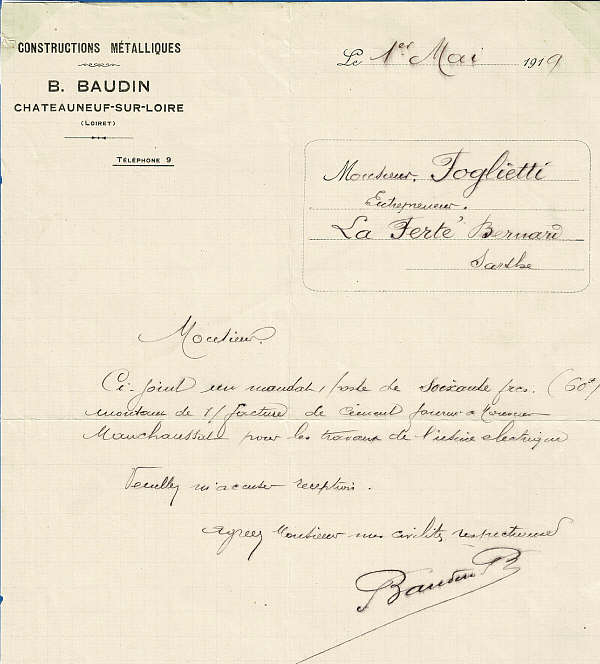 CONSTRUCTIONS MÉTALLIQUES
B. BAUDIN
CHATEAUNEUF-SUR-LOIRE
(LOIRET)
TÉLÉPHONE 9
Le 1er Mai 1919
Monsieur. Foglietti
Entrepreneur.
La Ferté Bernard
Sarthe
Monsieur.
Ci-joint un mandat, poste de Soixante frcs. (60f)
montant de s/ facture de ciment fourni a
pour les travaux de l'usine electrique
Veuillez m'accuser reception.
Agreez Monsieur mes civilités respectueuses
Baudin B